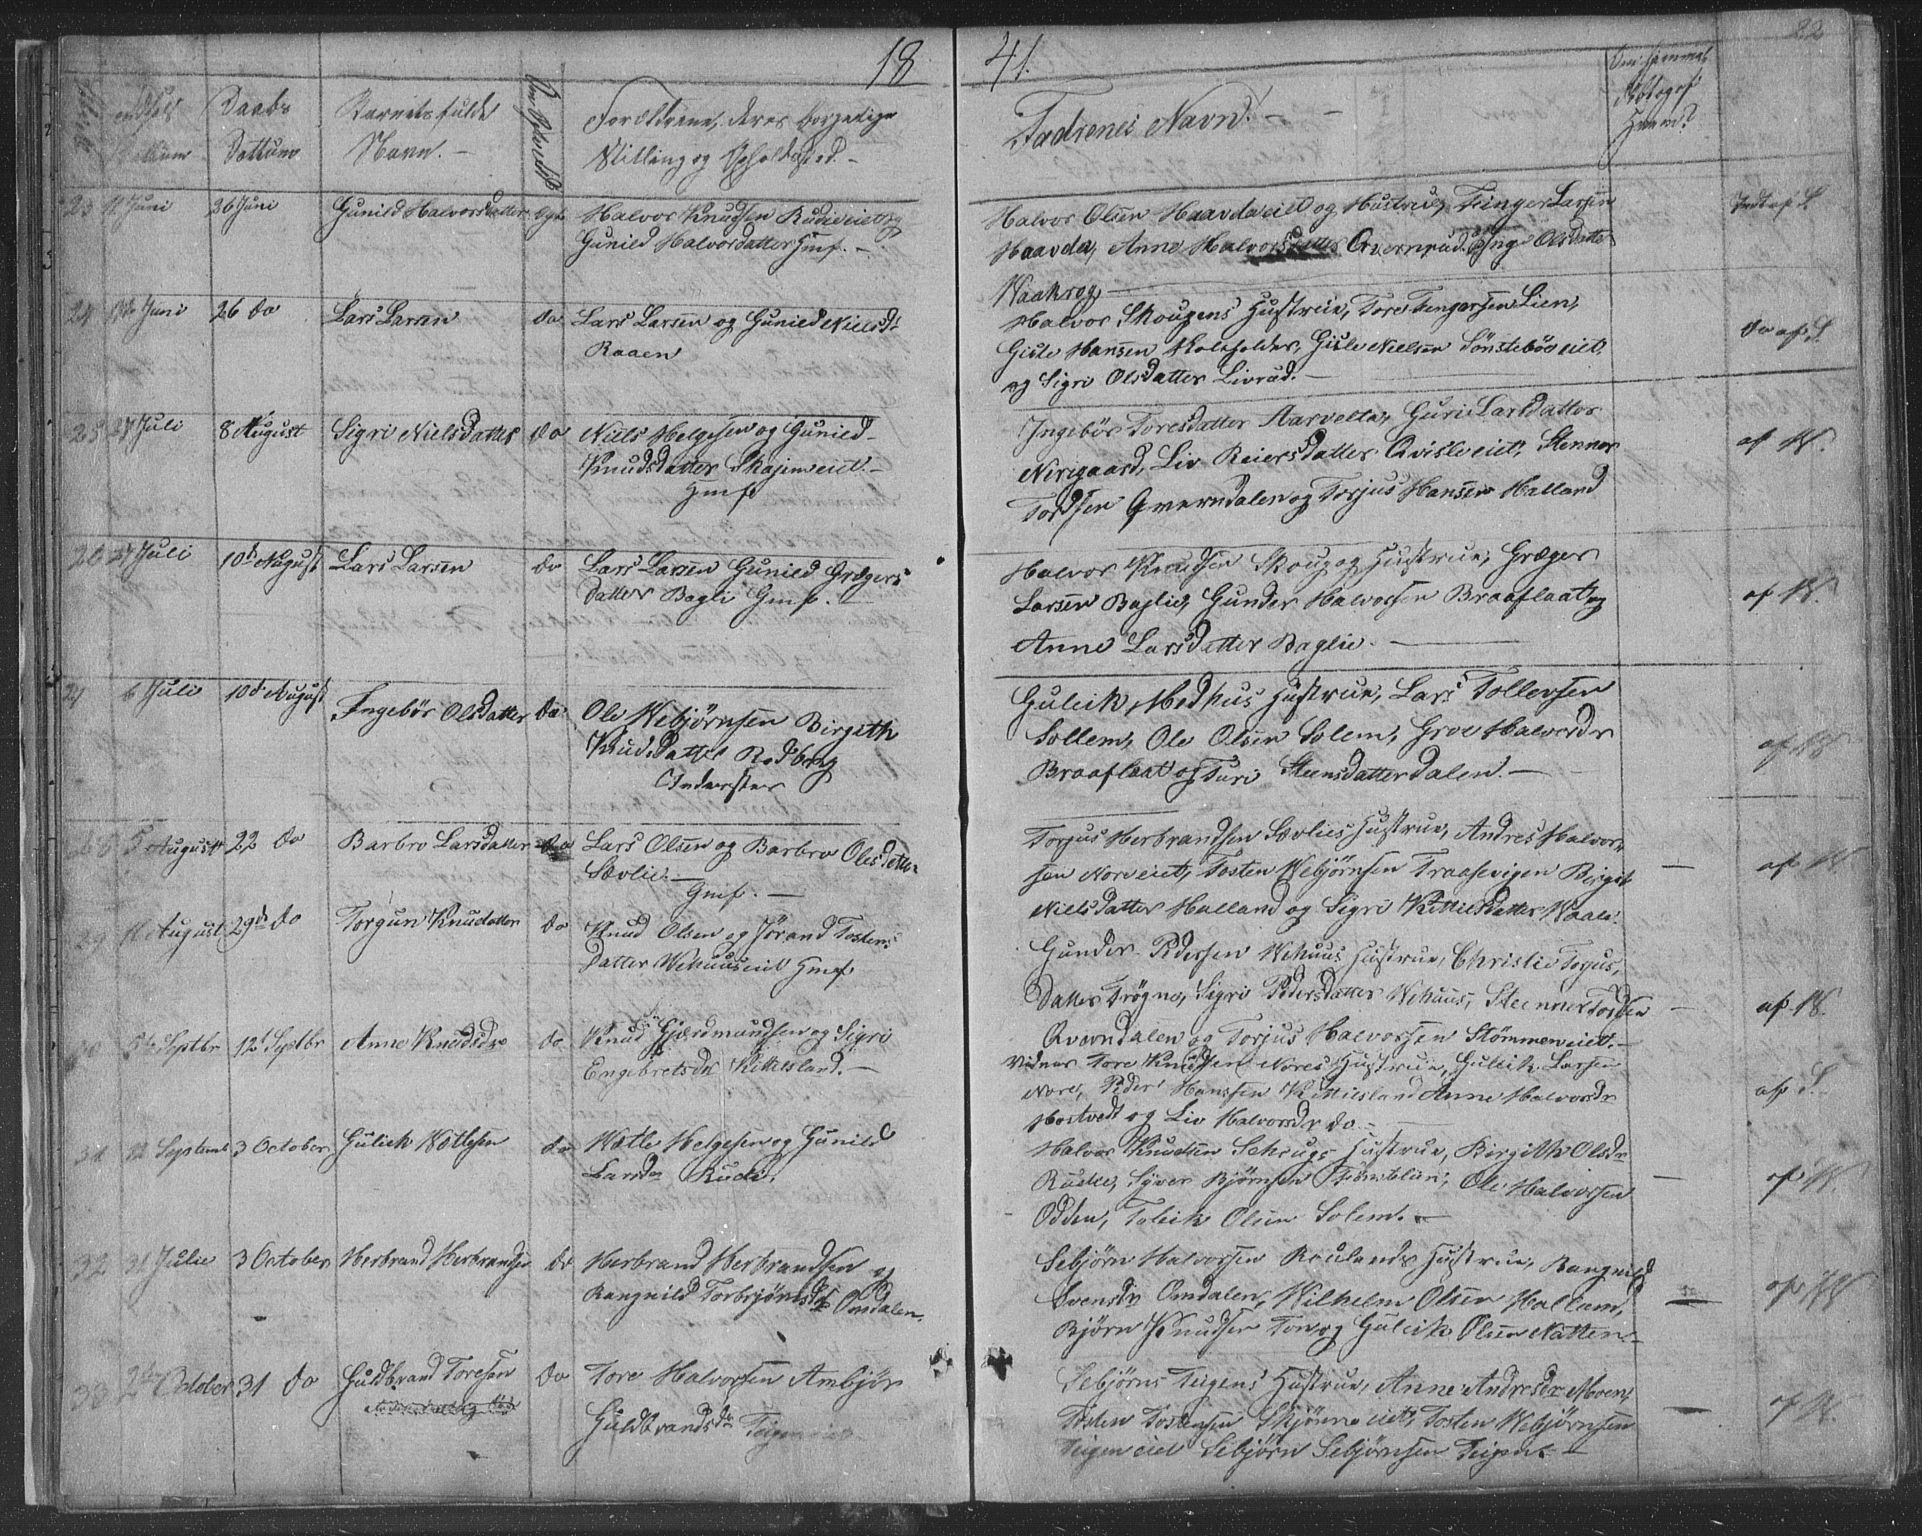 18 41.
22
Daabs
Dattum
Barnets fulde
Navn. -
Forældrene, deres borgerlige
Stilling og Opholdssted. -
Faderenes Navn. -
23 11 Juni 26 Juni Gunild Halvorsdatter Egte Halvor Knudsen Rudieiet og
Gunild Halvorsdatter Hmf. -
Halvor Olsen Haavdaeiet og Hustrue, Finger Larsen
Haavda, Anne Halvorsdatter Qvernrud. Inge Olsdatter
Waakrog
24 Juni 26 do Lars Larsen do Lars Larsen og Gunild Nielsd.
Raaen
Halvor Skougens Hustrue, Tore Fingersen Lien,
Gisle Hansen Kolsfolder, Gisle Nielsen Sønstebøe eiet,
og Sigri Olsdatter Livrud. - do af S.
25 27 Juli 8 August Sigri Nielsdatter do Niels Helgesen og Gunild
Knudsdatter Skajemeiet -
Hmf
Ingebør Toresdatter Aarvelta, Guri Larsdatter
Nirigaard, Liv Reiersdatter Qvisleeiet, Stenner
Tordsen Qverndalen og Torjus Hansen Halland
af W.
26 27 Juli 10d August Lars Larsen do Lars Larsen Gunild Grægers
datter Bagli Gmf. -
Halvor Knudsen Skoug og Hustrue, Græger
Larsen Baglie, Gunder Halvorsen Braaflaat og
Anne Larsdatter Baglie. -
af W.
27 6 Juli 10d August Ingebør Olsdatter do Ole Webjørnsen Birgith
Knudsdatter Rodberg
Inderster
Guleik Medhus Hustrue, Lars Tollevsen
Sollem, Ole Olsen Solem, Groe Halvorsdr
Braaflaat og Turi Steensdatter dalen. -
af W
28 5 August 22 do Barbro Larsdatter do Lars Olsen og Barbro Olesdatter
Sævlie. -
Gmf. -
Torjus Herbrandsen Sævlies Hustrue, Andres Halvor-
sen Noreeiet, Tosten Webjørnsen Traasevigen Birgit
Nielsdatter Halland og Sigri Kittilsdatter Waale.
af W
29 11 August 29d do Torgun Knudatter do Knud Olsen og Jørand Tostens
datter Wehuuseiet Hmf.
Gunder Pedersen Wehuus Hustrue, Christie Torjus,
datter Frøgne, Sigri Pedersdatter Wehuus, Steenner Tordsen
Qverndalen og Torjus Halvorsen Strømmeneiet. -
af W.
30 5te Septbr 12t Septbr Anne Knudsdr do Knud Gjærdmundsen og Sigri
Engebretsdr Kittilsland. -
Vidner Tore Knudsen Nores Hustrue, Guleik Larsen
Nore, Peder Hansen Kittilsland Anne Halvorsdr
Hostvedt og Liv Halvorsdr do. -
af S.
31 22 Septemb 3 October Guliek Wetlesen do Wetle Helgesen og Gunild
Larsdr Rudi.
Halvor Knudsen Schougs Hustrue, Birgith Olsdr
Rudie, Syver Bjørnsen Trømblien, Ole Halvorsen
Odden, Toleik Olsen Solem. -
af W.
32 31 Julie 3 October Herbrand Herbrandsen do Herbrand Herbrandsen og
Rangnild Torbjønsdr Omdalen.
Sebjørn Halvorsen Roulands Hustrue, Rangnild
Svensdr Omdalen, Wilhelm Olsen Hallam,
Bjørn Knudsen Ton og Guleik Olsen Natten -
af W
33 2den October 31 do Guldbrand Toresen do Tore Halvorsen Ambjør
Guldbrandsdr Teigeneiet
Sebjørns Teigens Hustrue, Anne Andresdr Moen,
Tosten Tostensen Skjønne eiet, Tosten Webjørnsen
Teigen eiet Sebjørn Sebjørnsen Teigen. -
af W.